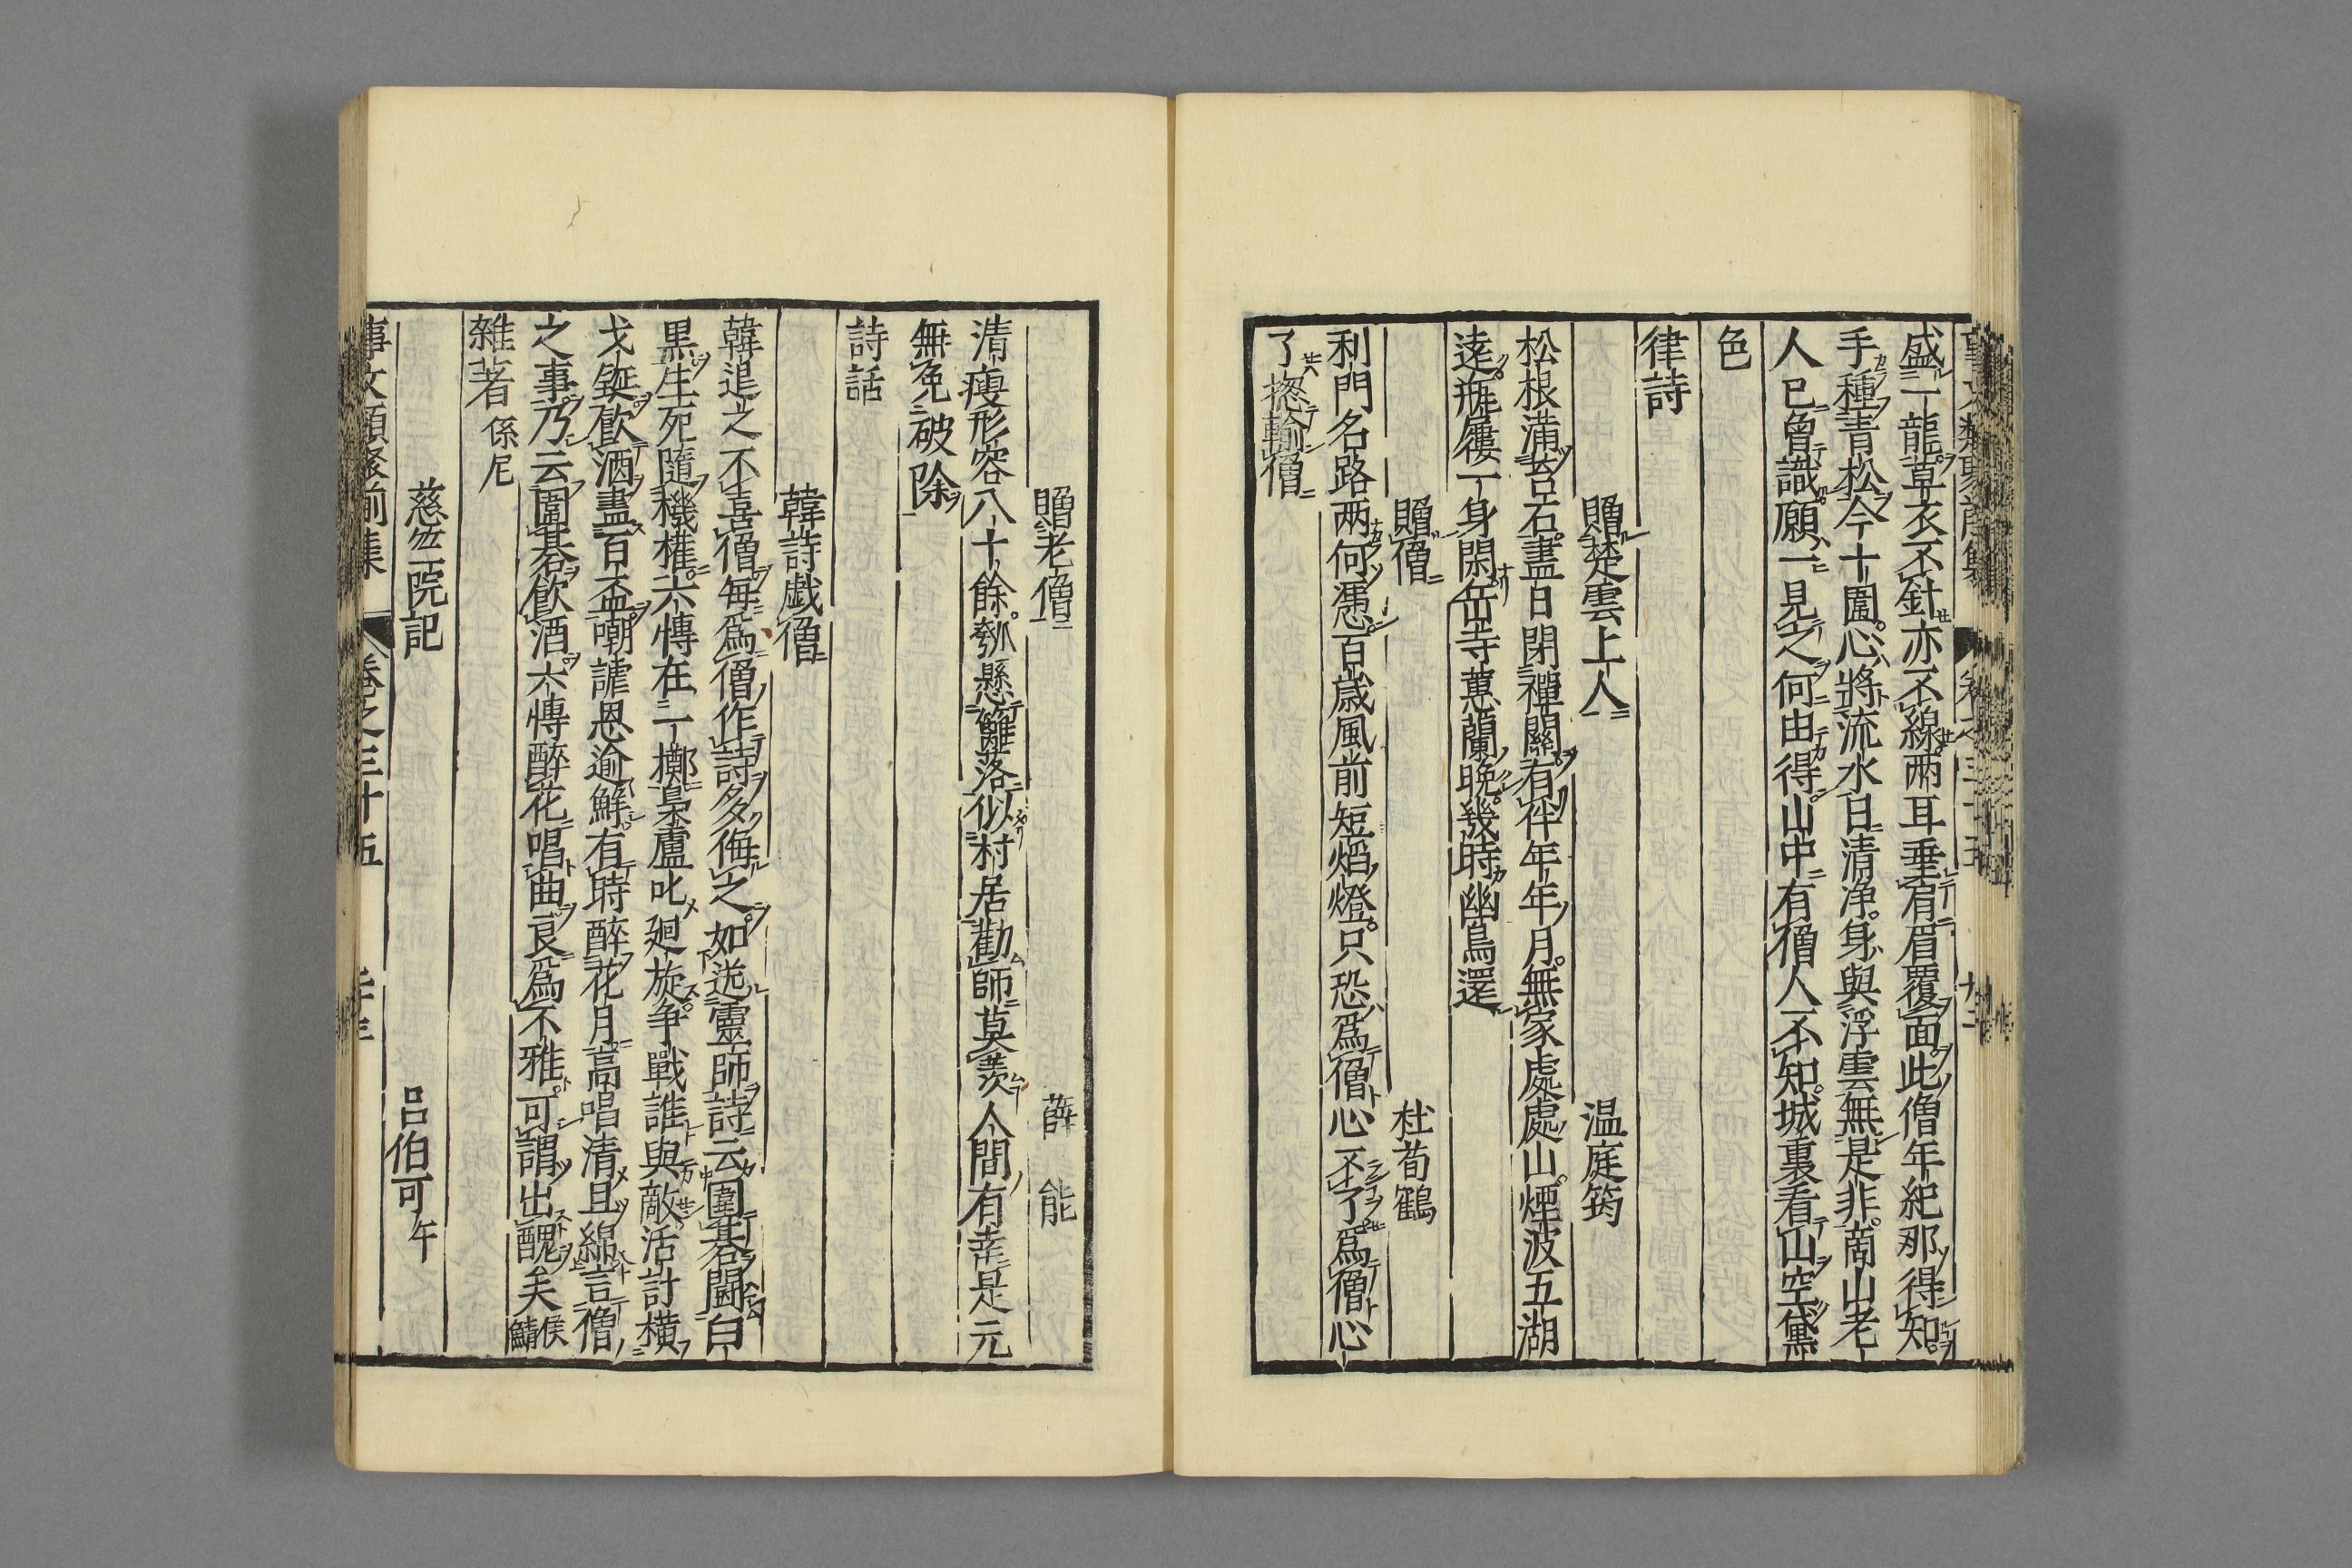 盛一龍草衣不針亦不線兩耳垂肩眉覆面此僧年紀那得知
手種青松今十圍心將流水日清浄身與浮雲無是非商山老
人已曾識願一見之何由得山中有僧人不知城裏看山空黛
色
律詩
贈楚雲上人 温庭筠
松根滿苔石盡日閉禪關有伴年年月無家處處山煙波五湖
逺瓶屨一身閑岳寺蕙蘭晩幾時幽鳥還
贈僧 杜荀鶴
利門名路两何慿百歳風前短焰燈只恐爲僧心不了爲僧心
了捴輸僧
贈老僧 薛能
清瘦形容八十餘瓠懸籬落似村居勸師莫羨人間有幸是元
無免破除
詩話
韓詩戯僧
韓退之不喜僧毎爲僧作詩多侮之如送靈師詩云圍碁鬬白
黒生死隨機權六慱在一擲梟盧叱廻旋争戰誰與敵活計横
戈鋋飲酒盡百盃嘲謔思逾鮮有時醉花月高唱清且綿言僧
之事乃云圍碁飲酒六慱醉花唱曲良爲不雅可謂出醜矣侯鯖
雜著 係尼
慈竺院記 呂伯可午
事文類聚前集 卷之三十五